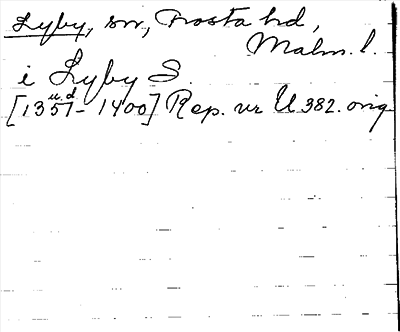 Lyby, sn, Frosta hd,
Malm. l.
i Lyby S.
u. d.
[1351-1400] Rep. nr U 382. orig